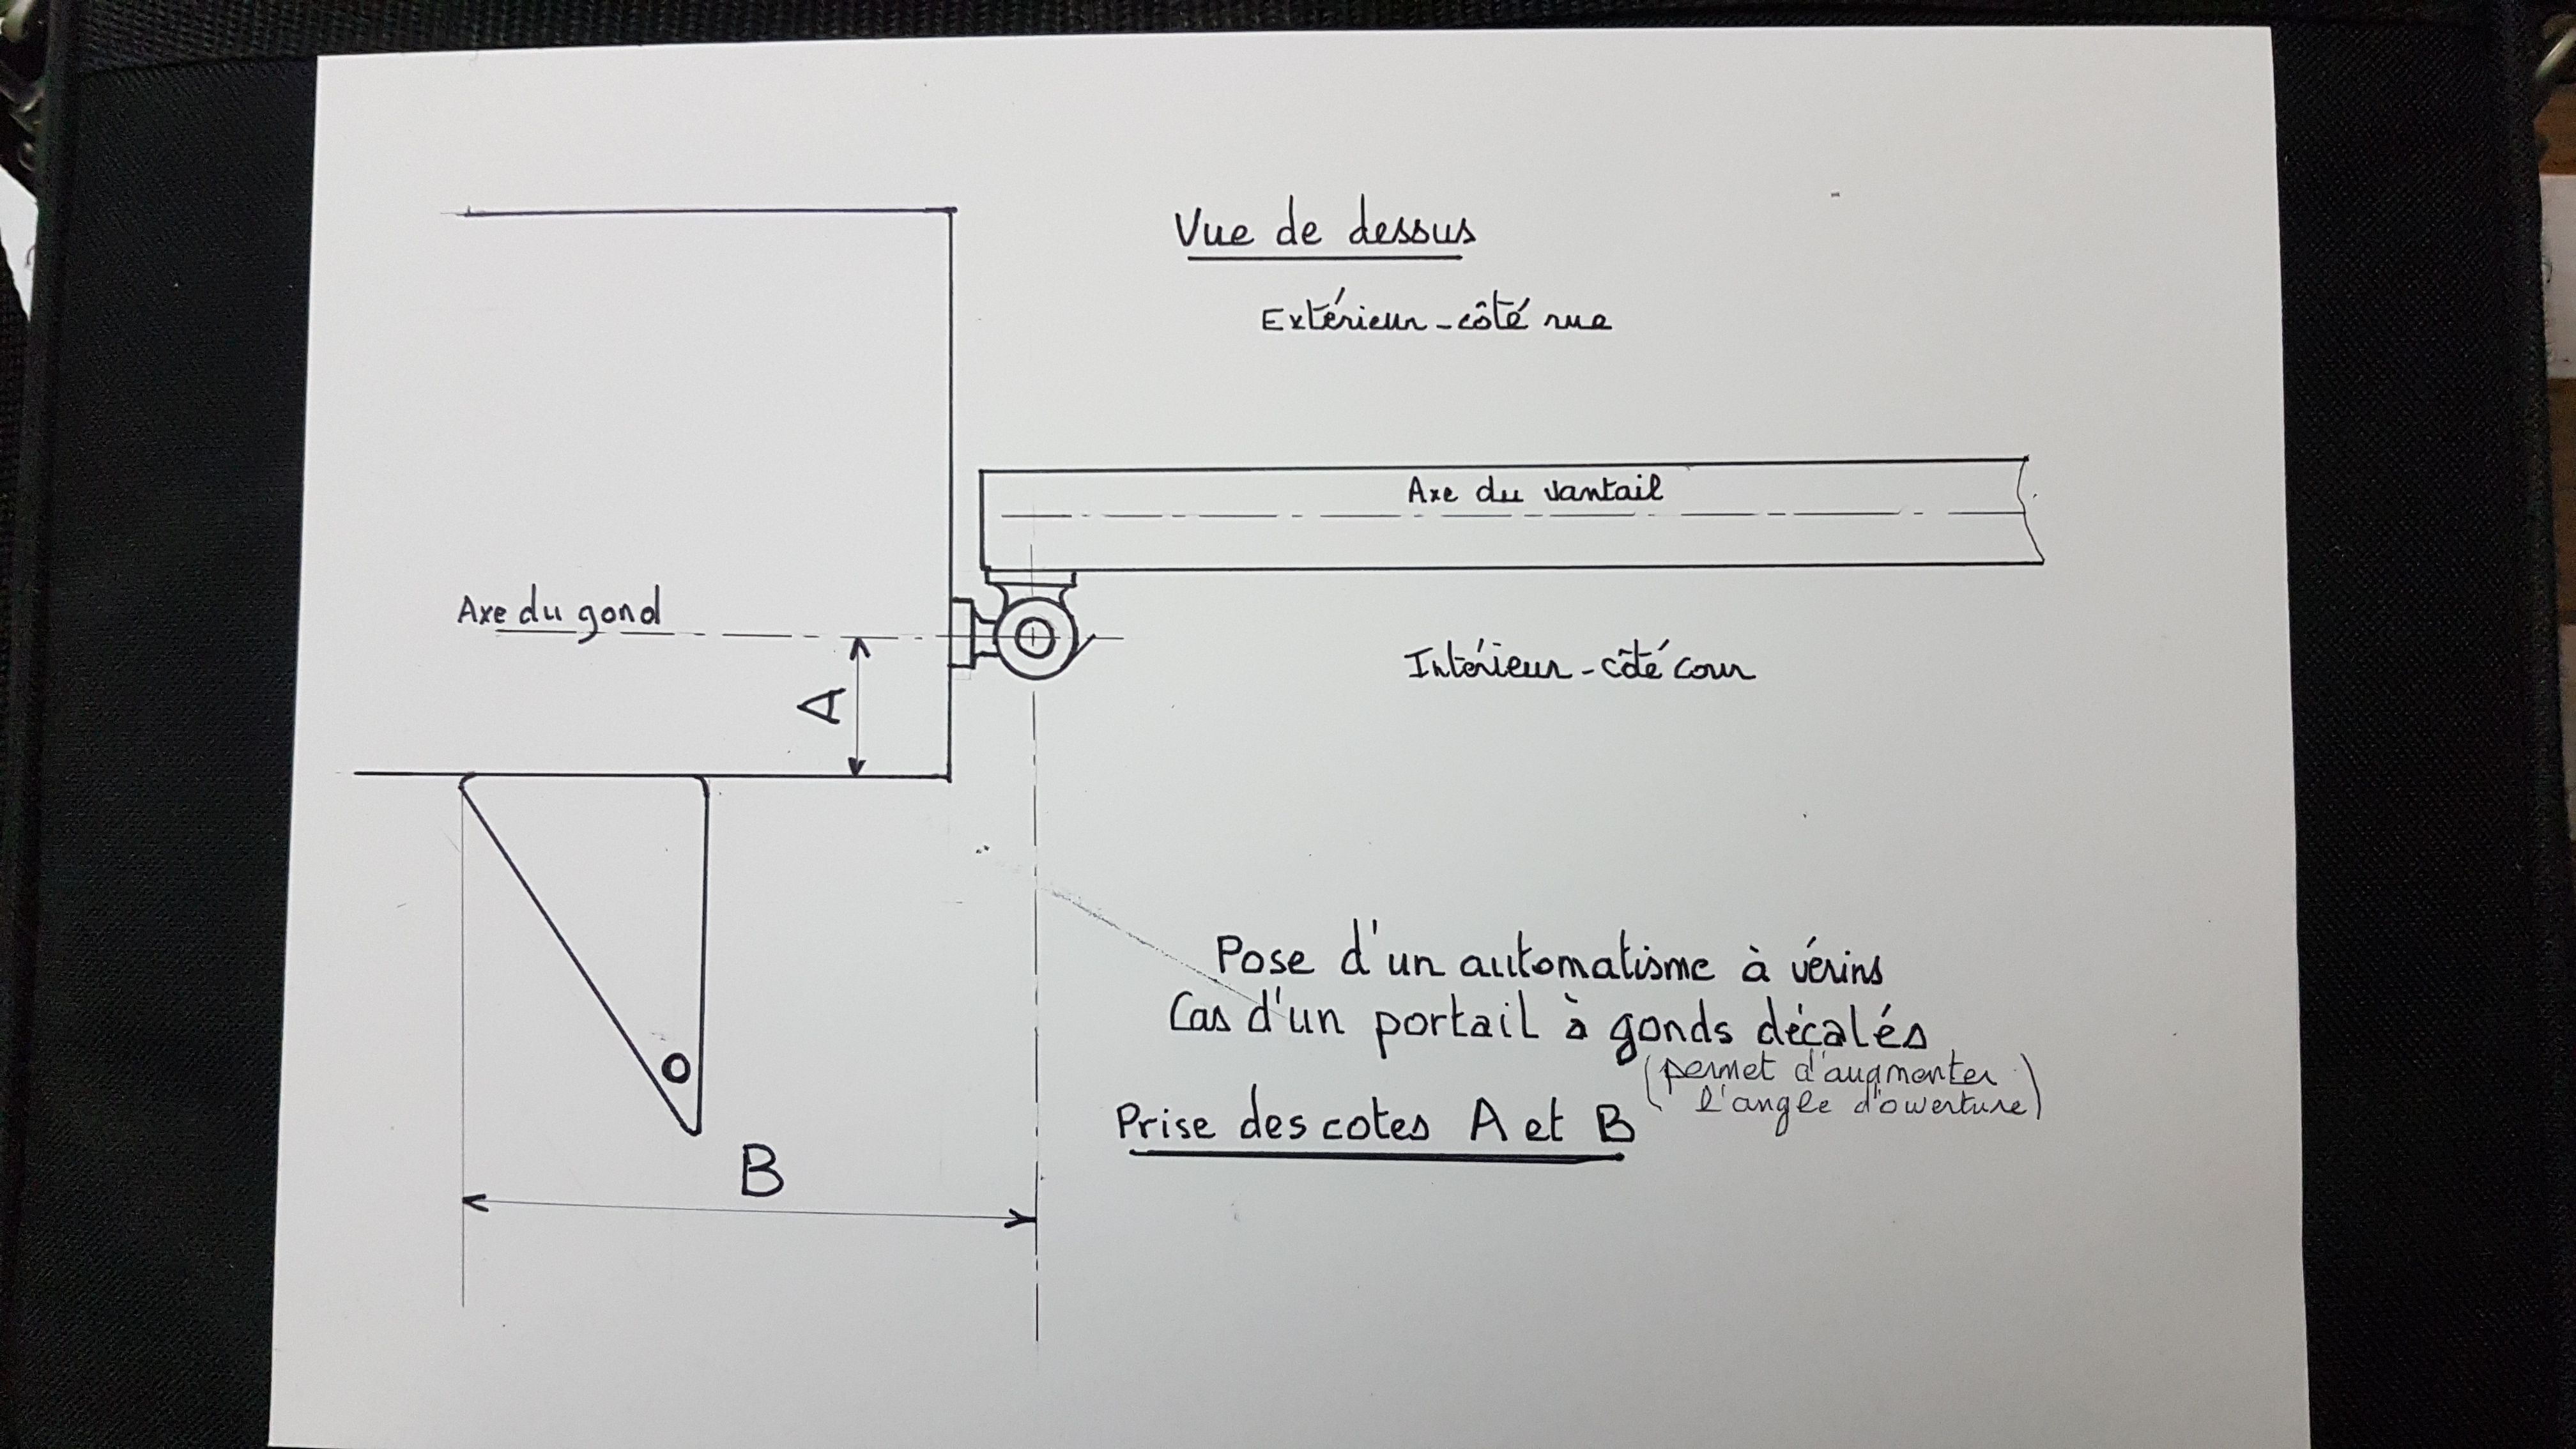 Vue de dessus
Extérieur - côté rue
Axe du vantail
Axe du gond
A
Intérieur - côté cour
Pose d'un automatisme à vérins
Cas d'un portail à gonds décalés
(permet d'augmenter
l'angle d'ouverture)
Prise des cotes A et B
B